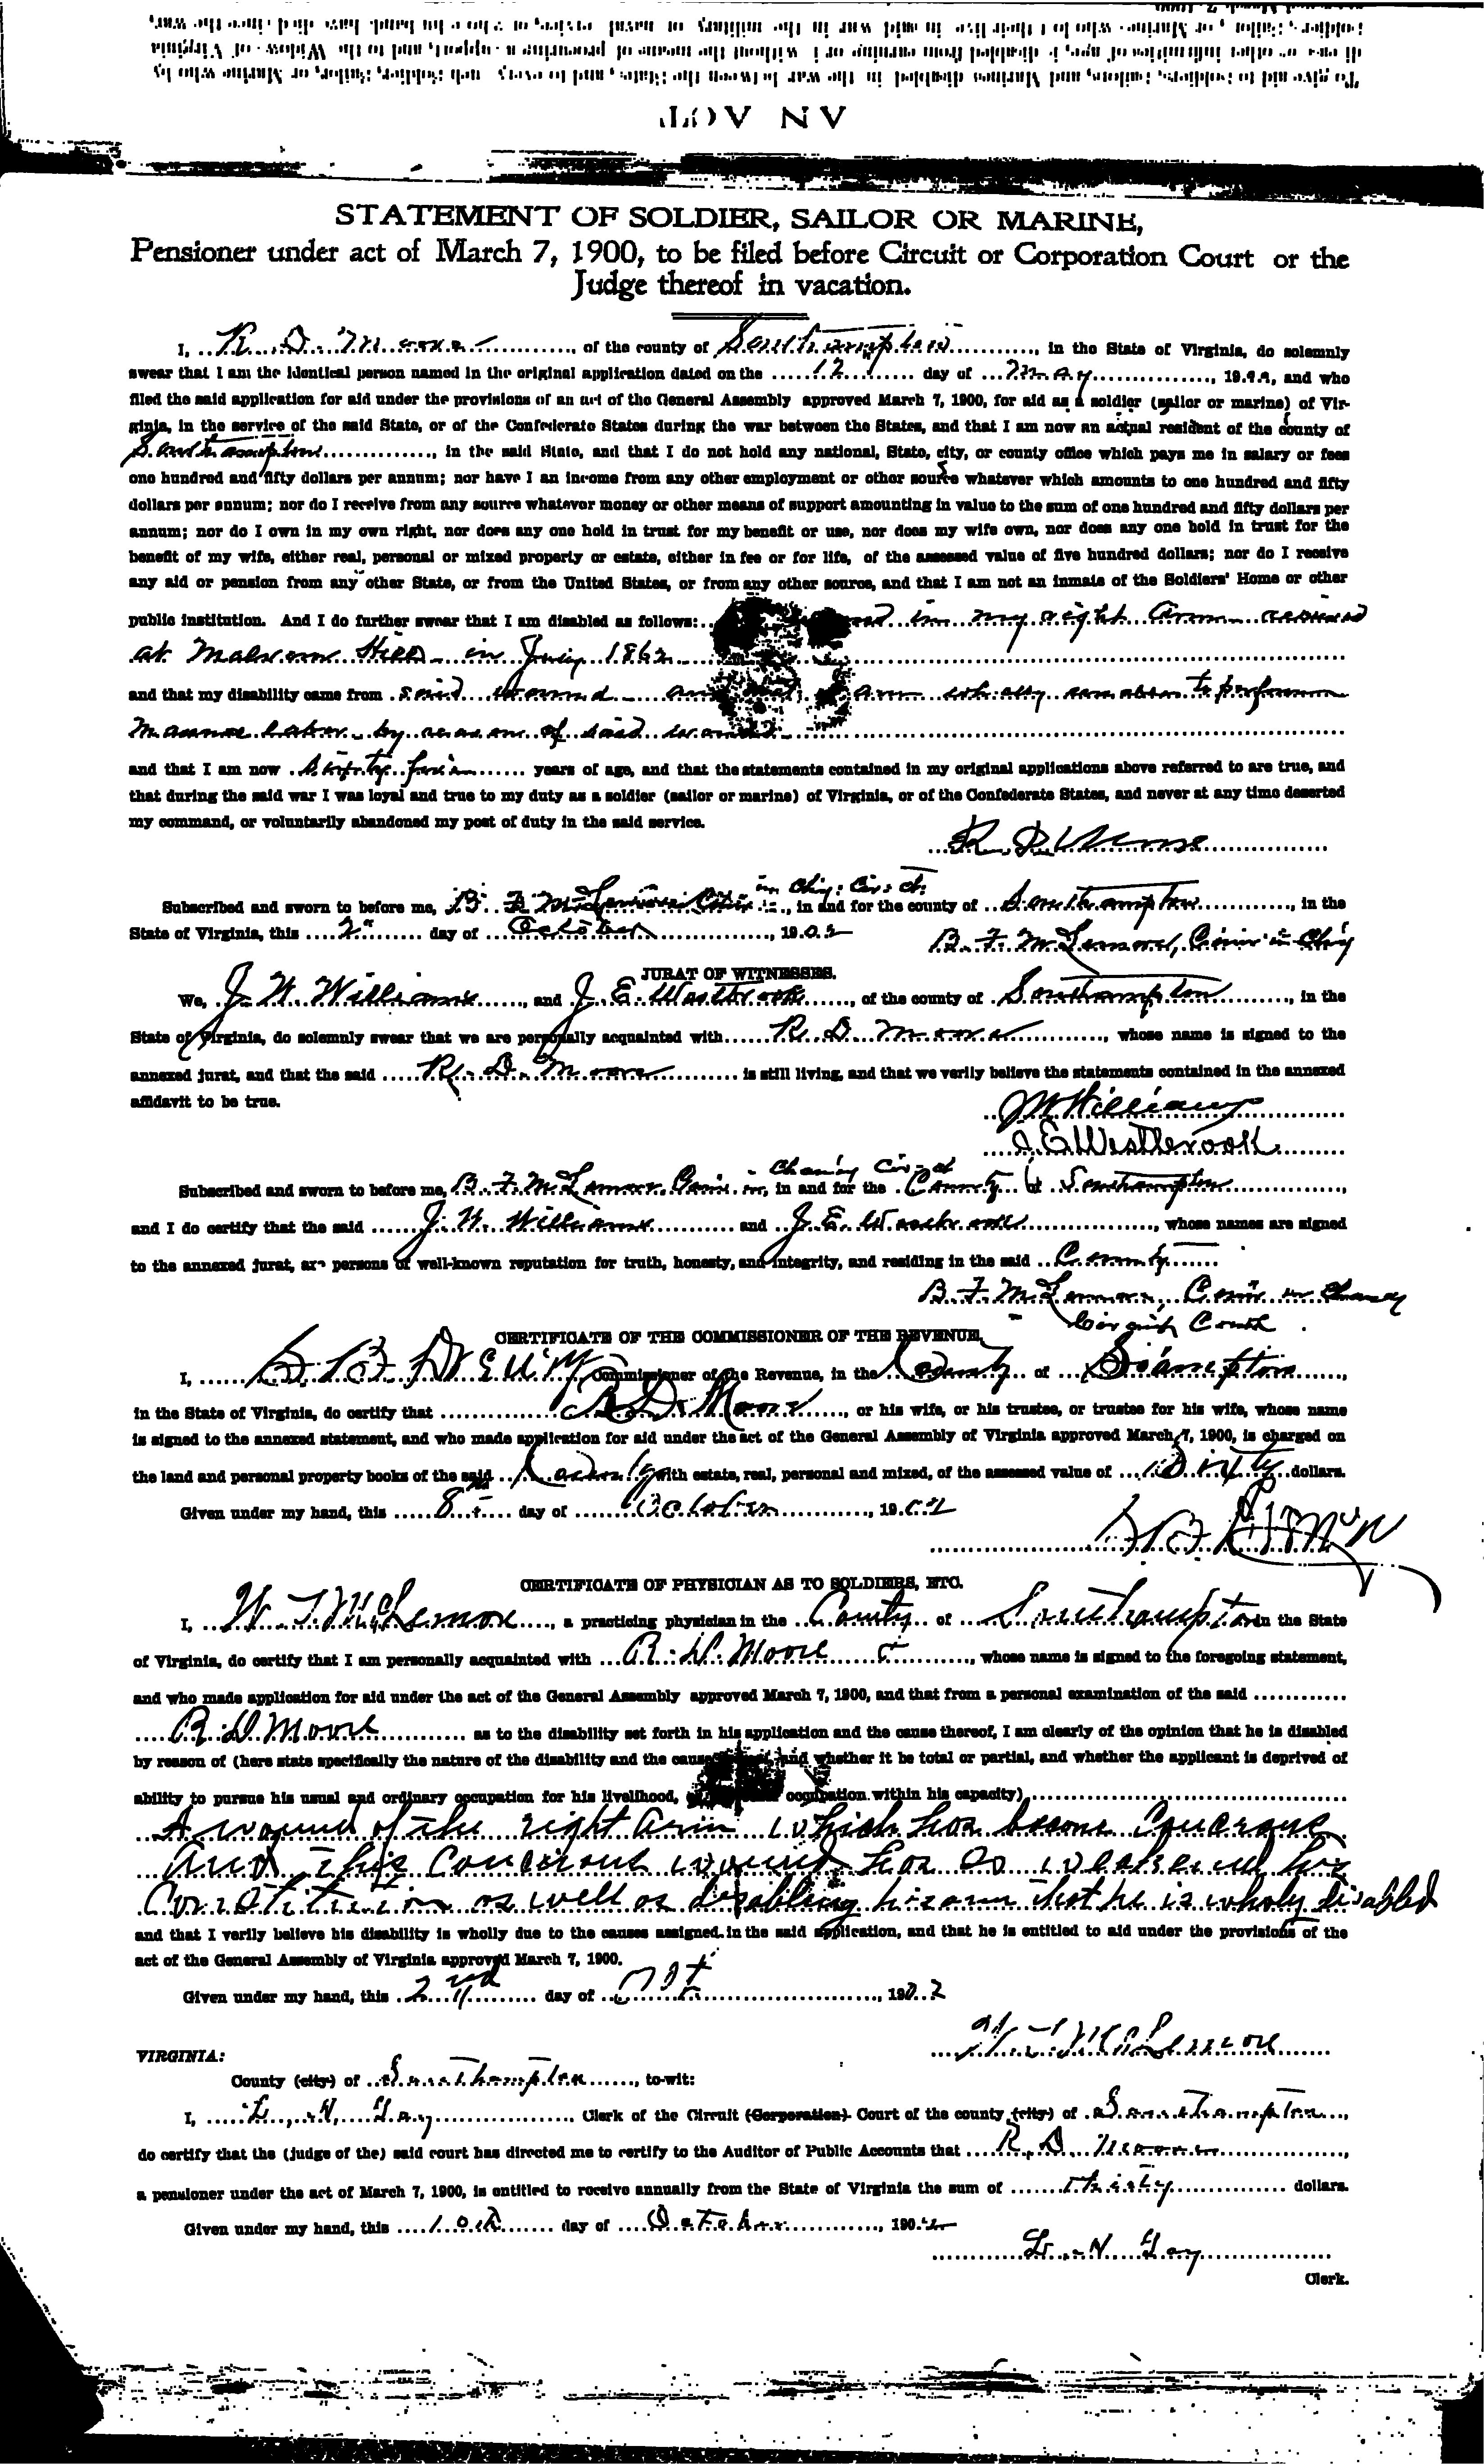 AN ACT.
To give aid to soldiers, sailors, and Marines disabled in the war between the States, and to
STATEMENT OF SOLDIER, SAILOR OR MARINE,
Pensioner under act of March 7, 1900, to be filed before Circuit or Corporation Court or the
Judge thereof in vacation.
I, R. D. Moore, of the county of Southampton, in the State of Virginia, do solemnly
swear that I am the identical person named in the original application dated on the 12 day of May, 19, and who
filed the said application for aid under the provisions of an act of the General Assembly approved March 7, 1900, for aid as a soldier (sailor or marine) of Vir-
ginia, in the service of the said State, or of the Confederate States during the war between the States, and that I am now an actual resident of the county of
Southampton, in the said State, and that I do not hold any national, State, city, or county office which pays me in salary or fees
one hundred and fifty dollars per annum; nor have I an income from any other employment or other source whatever which amounts to one hundred and fifty
dollars per annum; nor do I receive from any source whatever money or other means of support amounting in value to the sum of one hundred and fifty dollars per
annum; nor do I own in my own right, nor does any one hold in trust for my benefit or use, nor does my wife own, nor does any one hold in trust for the
benefit of my wife, either real, personal or mixed property or estate, either in fee or for life, of the assessed value of five hundred dollars; nor do I receive
any aid or pension from any other State, or from the United States, or from any other source, and that I am not an inmate of the Soldiers' Home or other
public institution. And I do further swear that I am disabled as follows: in my right arm received
at Malvern Hill in July 1862
and that my disability came from said wound am wholly unable to perform
manual labor by reason of said wound
and that I am now years of age, and that the statements contained in my original applications above referred to are true, and
that during the said war I was loyal and true to my duty as a soldier (sailor or marine) of Virginia, or of the Confederate States, and never at any time deserted
my command, or voluntarily abandoned my post of duty in the said service.
R. D. Moore
in Chy: Cir: Ct:
Subscribed and sworn to before me, B. F. McLemore Com'r, in and for the county of Southampton, in the
State of Virginia, this 2nd day of October, 1902
B. F. McLemore, Com'r in Chy
JURAT OF WITNESSES.
We, J. W. Williams, and J. E. Westbrook, of the county of Southampton, in the
State of Virginia, do solemnly swear that we are personally acquainted with R. D. Moore, whose name is signed to the
annexed jurat, and that the said R. D. Moore is still living, and that we verily believe the statements contained in the annexed
affidavit to be true.
J W Williams
J. E. Westbrook
Chancy Cir Ct
Subscribed and sworn to before me, B. F. McLemore, Com'r in, in and for the County of Southampton,
and I do certify that the said J. W. Williams and J. E. Westbrook, whose names are signed
to the annexed jurat, are persons of well-known reputation for truth, honesty, and integrity, and residing in the said County
B. F. McLemore, Com'r in Chancy
Circuit Court.
CERTIFICATE OF THE COMMISSIONER OF THE REVENUE.
I, Commissioner of the Revenue, in the County of S'ampton,
in the State of Virginia, do certify that R. D. Moore, or his wife, or his trustee, or trustee for his wife, whose name
is signed to the annexed statement, and who made application for aid under the act of the General Assembly of Virginia approved March 7, 1900, is charged on
the land and personal property books of the said County with estate, real, personal and mixed, of the assessed value of dollars.
Given under my hand, this 8th day of October, 1902
CERTIFICATE OF PHYSICIAN AS TO SOLDIERS, ETC.
I, W. T. McLemore, a practicing physician in the County of Southampton in the State
of Virginia, do certify that I am personally acquainted with R. D. Moore, whose name is signed to the foregoing statement,
and who made application for aid under the act of the General Assembly approved March 7, 1900, and that from a personal examination of the said
R. D. Moore as to the disability set forth in his application and the cause thereof, I am clearly of the opinion that he is disabled
by reason of (here state specifically the nature of the disability and the cause and whether it be total or partial, and whether the applicant is deprived of
ability to pursue his usual and ordinary occupation for his livelihood, occupation within his capacity)
A wound of the right arm which has become Cancerous
and this Cancerous wound has so weakened his
Constitution as well as disabling his arm that he is wholy disabled
and that I verily believe his disability is wholly due to the causes assigned in the said application, and that he is entitled to aid under the provisions of the
act of the General Assembly of Virginia approved March 7, 1900.
Given under my hand, this 2nd day of Oct, 1902
W. T. McLemore
VIRGINIA:
County (city) of Southampton, to-wit:
I, L. N. Gay, Clerk of the Circuit (Corporation) Court of the county (city) of Southampton,
do certify that the (judge of the) said court has directed me to certify to the Auditor of Public Accounts that R. D. Moore,
a pensioner under the act of March 7, 1900, is entitled to receive annually from the State of Virginia the sum of thirty dollars.
Given under my hand, this 10th day of October, 1902
L. N. Gay
Clerk.